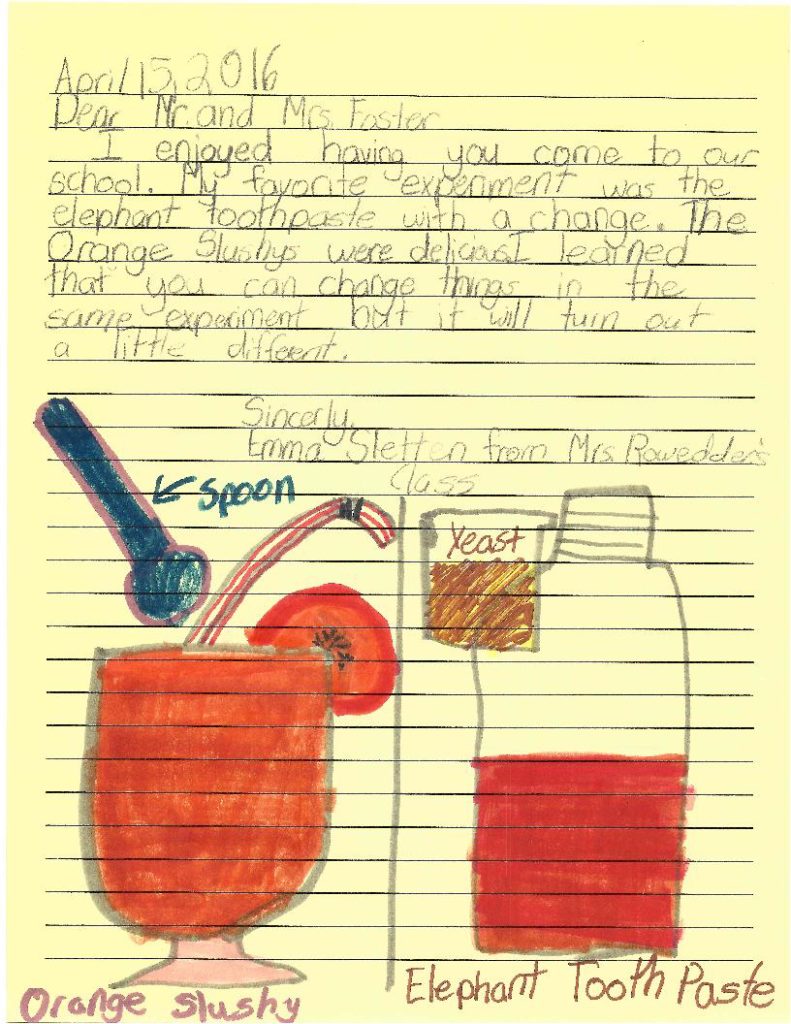 April 15, 2016
Dear Mr. and Mrs. Foster
I enjoyed having you come to our
school. My favorite experiment was the
elephant toothpaste with a change. The
Orange Slushys were delicious. I learned
that you can change things in the
same experiment but it will turn out
a little different.
Sincerly,
Emma Sletten from Mrs. Rowedder's
Class
spoon
Yeast
Orange slushy
Elephant Tooth Paste